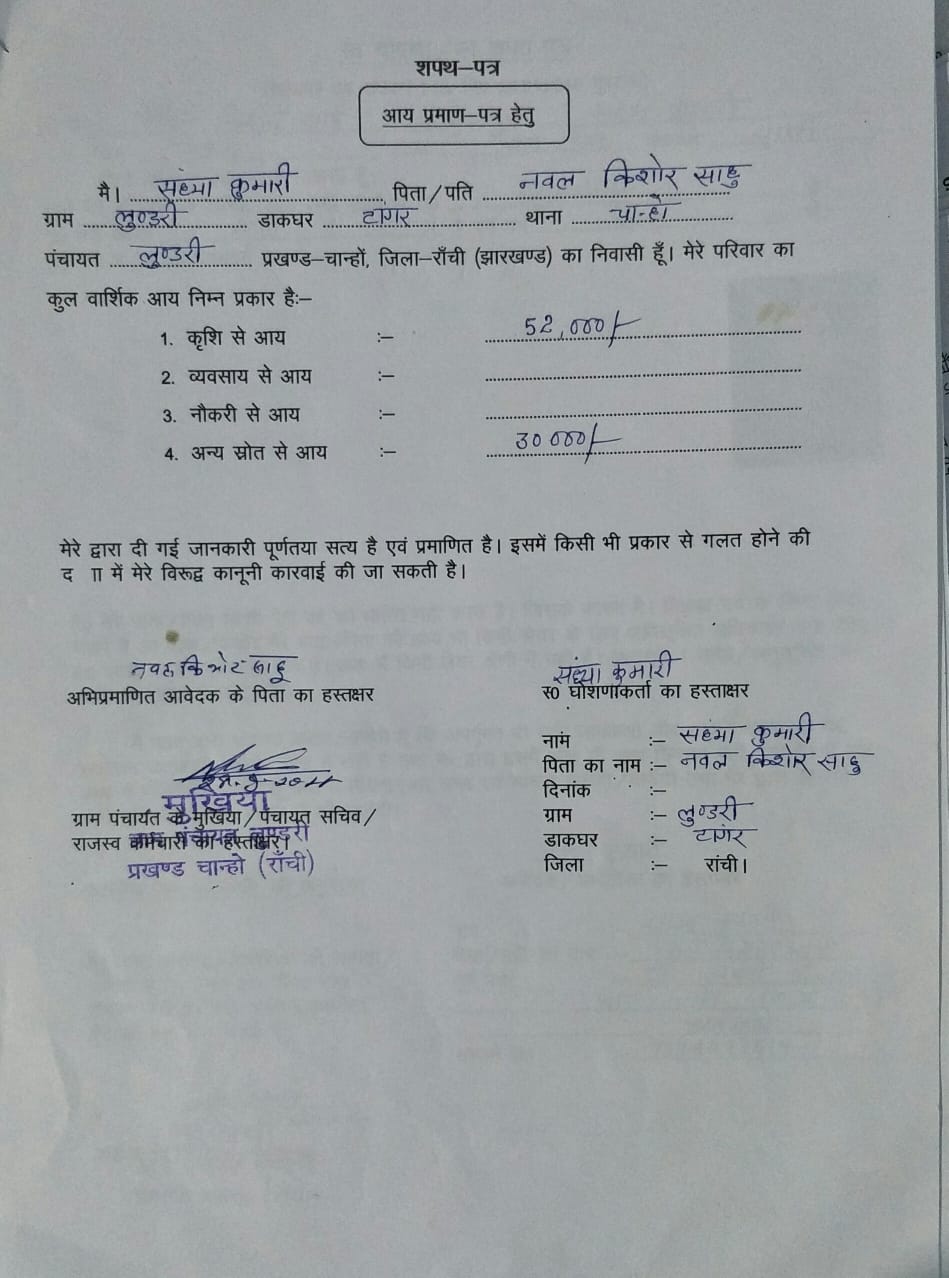 शपथ–पत्र
आय प्रमाण–पत्र हेतु
मै। संध्या कुमारी पिता/पति नवल किशोर साहु
ग्राम लुण्डरी डाकघर टांगर थाना चान्हो
पंचायत लुण्डरी प्रखण्ड–चान्हों, जिला–राँची (झारखण्ड) का निवासी हूँ। मेरे परिवार का
कुल वार्शिक आय निम्न प्रकार हैः–
1. कृशि से आय :– 52,000/-
2. व्यवसाय से आय :–
3. नौकरी से आय :–
4. अन्य स्रोत से आय :– 30000/-
मेरे द्वारा दी गई जानकारी पूर्णतया सत्य है एवं प्रमाणित है। इसमें किसी भी प्रकार से गलत होने की
द ाा में मेरे विरूद्व कानूनी कारवाई की जा सकती है।
नवल किशोर साहु संध्या कुमारी
अभिप्रमाणित आवेदक के पिता का हस्तक्षर स0 घोशणाकर्ता का हस्ताक्षर
नांम :– संध्या कुमारी
पिता का नाम :– नवल किशोर साहु
दिनांक :–
मुखिया
ग्राम पंचायत के मुखिया/पंचायत सचिव/ ग्राम :– लुण्डरी
राजस्व कर्मचारी का हस्ताक्षर। डाकघर :– टांगर
ग्राम पंचायत लुण्डरी
प्रखण्ड चान्हो (राँची) जिला :– रांची।